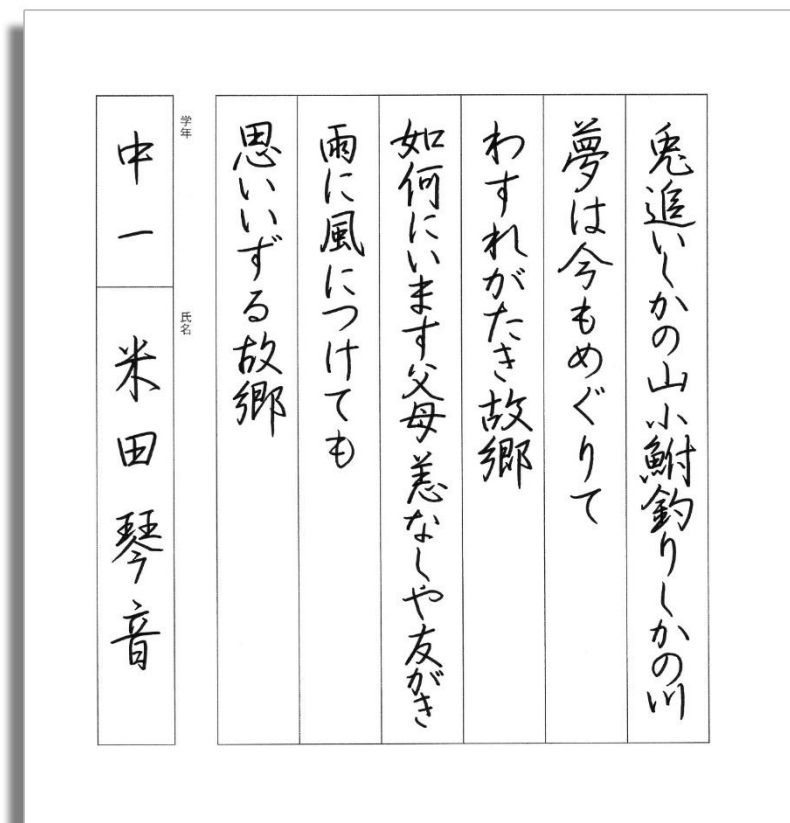 兎追いしかの山小鮒釣りしかの川
夢は今もめぐりて
わすれがたき故郷
如何にいます父母恙なしや友がき
雨に風につけても
思いいずる故郷
学年
中一
氏名
米田琴音